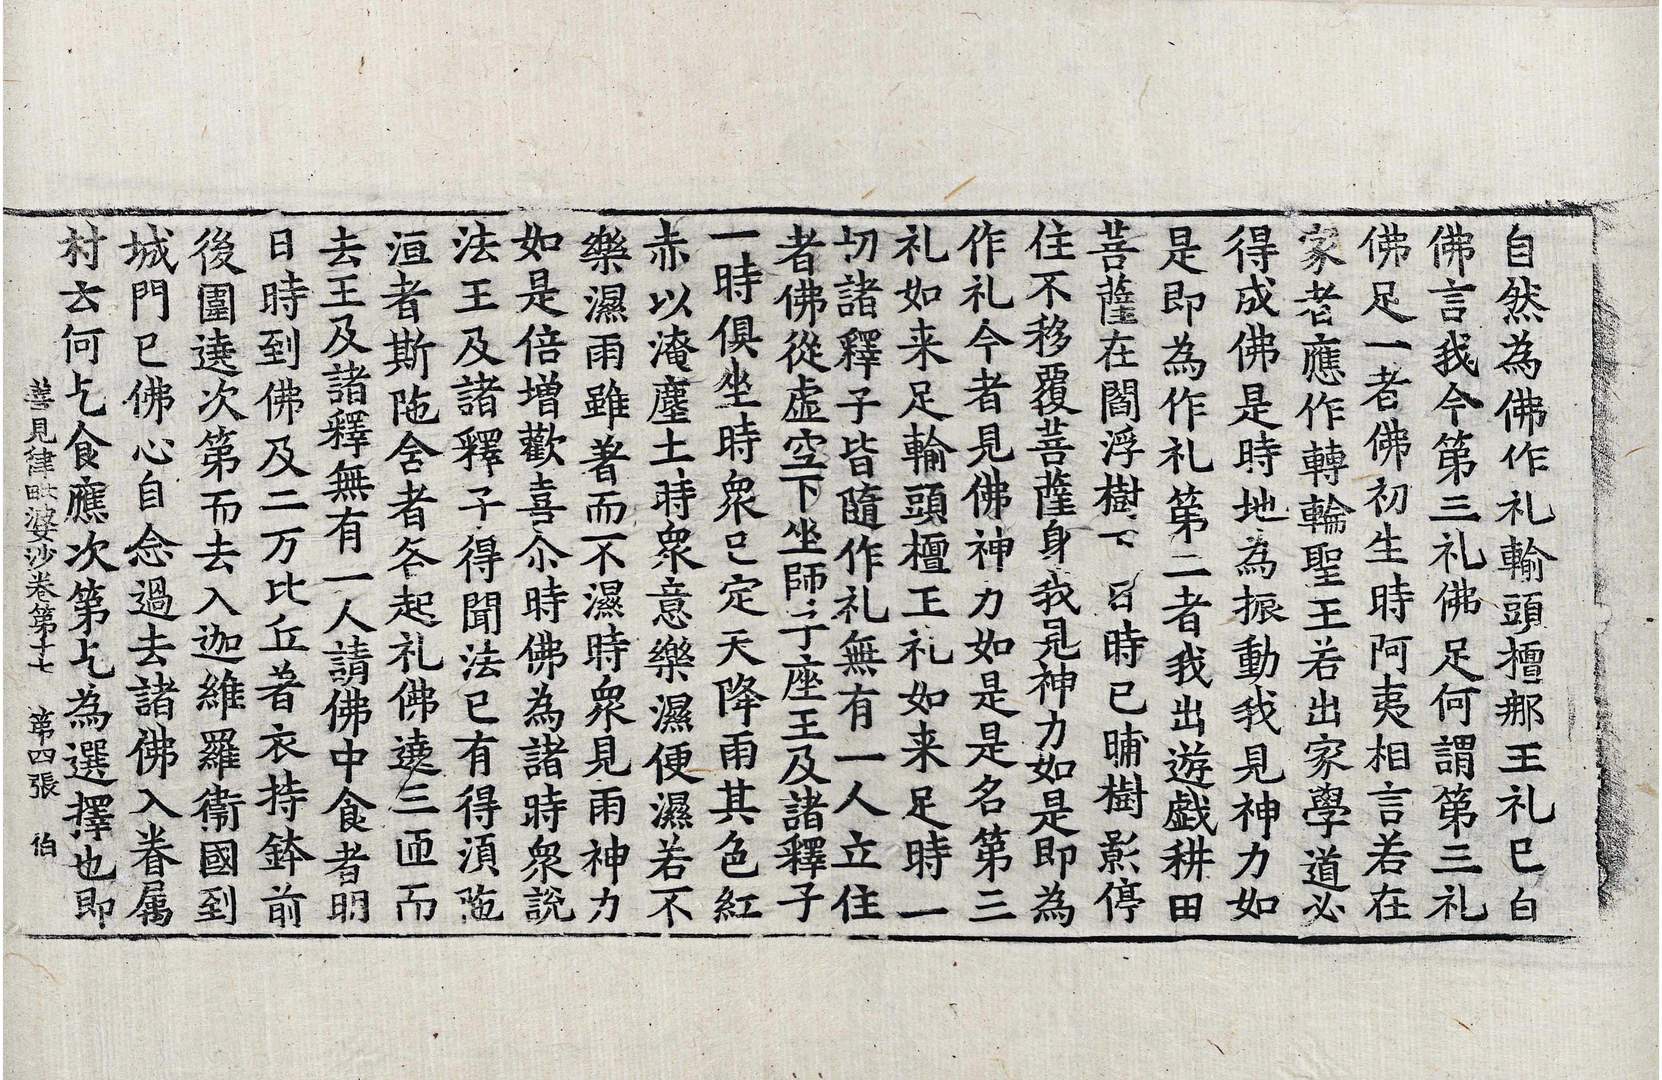 自然為佛作礼輸頭擅那王礼已白
佛言我今第三礼佛足何謂第三礼
佛足一者佛初生時阿夷相言若在
家者應作轉輪聖王若出家學道必
得成佛是時地為振動我見神力如
是即為作礼第二者我出遊戯耕田
菩薩在閻浮樹下日時已晡樹影停
住不移覆菩薩身我見神力如是即為
作礼今者見佛神力如是是名第三
礼如来足輸頭檀王礼如来足時一
切諸釋子皆隨作礼無有一人立住
者佛從虛空下坐師子座王及諸釋子
一時俱坐時衆已定天降雨其色紅
赤以淹塵土時衆意樂濕便濕若不
樂濕雨雖著而不濕時衆見雨神力
如是倍增歡喜尒時佛為諸時衆說
法王及諸釋子得聞法已有得湏陁
洹者斯陁含者各起礼佛遶三匝而
去王及諸釋無有一人請佛中食者明
日時到佛及二万比丘著衣持鉢前
後圍遶次第而去入迦維羅衛國到
城門已佛心自念過去諸佛入眷属
村去何乞食應次第乞為選擇也即
善見律毗婆沙卷第十七 第四張 伯